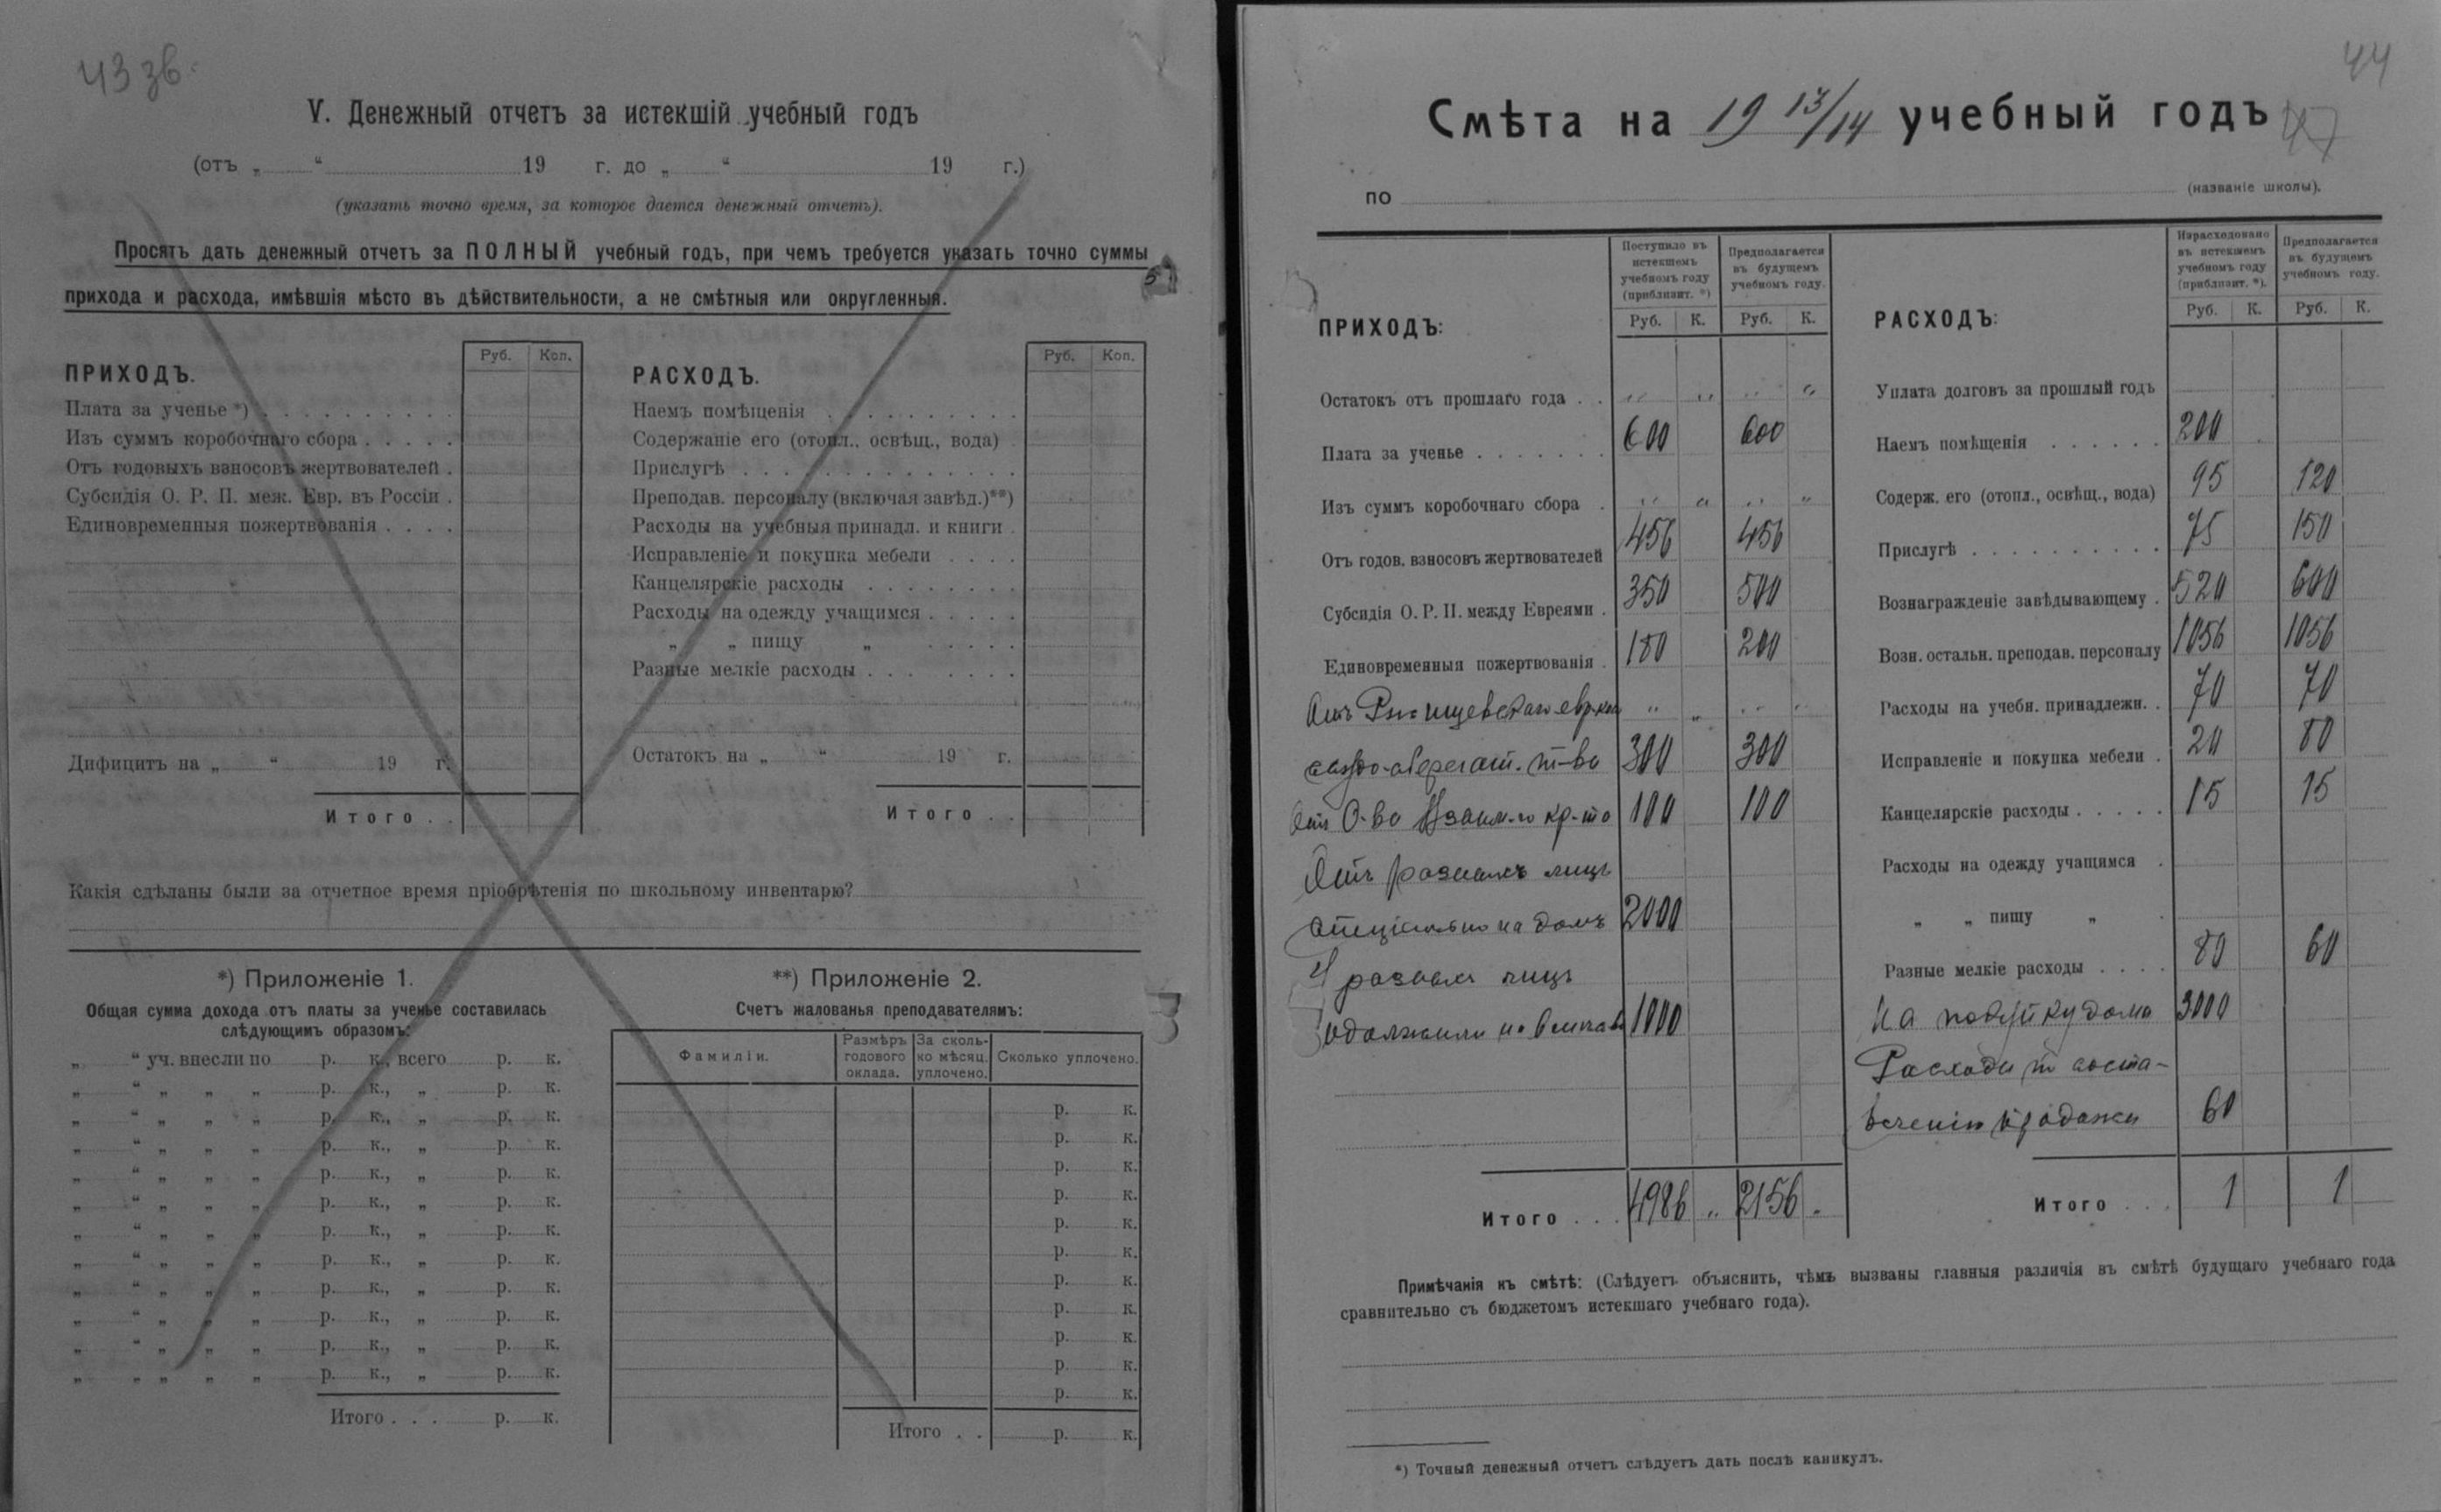 43 зв.
V. Денежный отчетъ за истекшій учебный годъ
(отъ „ “ 19 г. до „ “ 19 г.)
(указать точно время, за которое дается денежный отчетъ).
Просятъ дать денежный отчетъ за ПОЛНЫЙ учебный годъ, при чемъ требуется указать точно суммы
прихода и расхода, имѣвшія мѣсто въ дѣйствительности, а не смѣтныя или округленныя.
ПРИХОДЪ. Руб. Коп.
Плата за ученье *)
Изъ суммъ коробочнаго сбора
Отъ годовыхъ взносовъ жертвователей
Субсидія О. Р. П. меж. Евр. въ Россіи
Единовременныя пожертвованія
Дифицитъ на „ “ 19 г.
Итого
РАСХОДЪ. Руб. Коп.
Наемъ помѣщенія
Содержаніе его (отопл., освѣщ., вода)
Прислугѣ
Преподав. персоналу (включая завѣд.)**)
Расходы на учебныя принадл. и книги
Исправленіе и покупка мебели
Канцелярскіе расходы
Расходы на одежду учащимся
„ „ пищу „
Разные мелкіе расходы
Остатокъ на „ “ 19 г.
Итого
Какія сдѣланы были за отчетное время пріобрѣтенія по школьному инвентарю?
*) Приложеніе 1.
Общая сумма дохода отъ платы за ученье составилась
слѣдующимъ образомъ:
„ “ уч. внесли по р. к., всего р. к.
„ “ „ „ „ р. к., „ р. к.
„ “ „ „ „ р. к., „ р. к.
„ “ „ „ „ р. к., „ р. к.
„ “ „ „ „ р. к., „ р. к.
„ “ „ „ „ р. к., „ р. к.
„ “ „ „ „ р. к., „ р. к.
„ “ „ „ „ р. к., „ р. к.
„ “ „ „ „ р. к., „ р. к.
„ “ „ „ „ р. к., „ р. к.
„ “ „ „ „ р. к., „ р. к.
„ „ „ „ „ р. к., „ р. к.
Итого . . . р. к.
**) Приложеніе 2.
Счетъ жалованья преподавателямъ:
Фамиліи. Размѣръ годового оклада. За сколько мѣсяц. уплочено. Сколько уплочено.
р. к.
р. к.
р. к.
р. к.
р. к.
р. к.
р. к.
р. к.
р. к.
р. к.
р. к.
Итого . . р. к.
44
Смѣта на 19 13/14 учебный годъ
47
по (названіе школы).
ПРИХОДЪ: Поступило въ истекшемъ учебномъ году (приблизит. *) Предполагается въ будущемъ учебномъ году.
Руб. К. Руб. К.
Остатокъ отъ прошлаго года . . „ „ „ „
Плата за ученье 600 600
Изъ суммъ коробочнаго сбора . „ „ „ „
Отъ годов. взносовъ жертвователей 456 456
Субсидія О. Р. П. между Евреями . 350 500
Единовременныя пожертвованія . 180 200
Отъ Ржищевскаго евр. „ „ „ „
ссудо-сберегат. т-ва 300 300
Отъ О-ва Взаим-го кр-та 100 100
Отъ разныхъ лицъ
спеціально на домъ 2000
У разныхъ лицъ
одолжили 1000
Итого . . . 4986 „ 2156 „
РАСХОДЪ: Израсходовано въ истекшемъ учебномъ году (приблизит. *). Предполагается въ будущемъ учебномъ году.
Руб. К. Руб. К.
Уплата долговъ за прошлый годъ
Наемъ помѣщенія 200
Содерж. его (отопл., освѣщ., вода) 95 120
Прислугѣ 75 150
Вознагражденіе завѣдывающему . 520 600
Возн. остальн. преподав. персоналу 1056 1056
Расходы на учебн. принадлежн. . 70 70
Исправленіе и покупка мебели . 20 80
Канцелярскіе расходы 15 15
Расходы на одежду учащимся .
„ „ пищу „ .
Разные мелкіе расходы 80 60
На покупку дома 3000
Расходы по соста-
вленію продажи 60
Итого
Примѣчанія къ смѣтѣ: (Слѣдуетъ объяснить, чѣмъ вызваны главныя различія въ смѣтѣ будущаго учебнаго года
сравнительно съ бюджетомъ истекшаго учебнаго года).
*) Точный денежный отчетъ слѣдуетъ дать послѣ каникулъ.